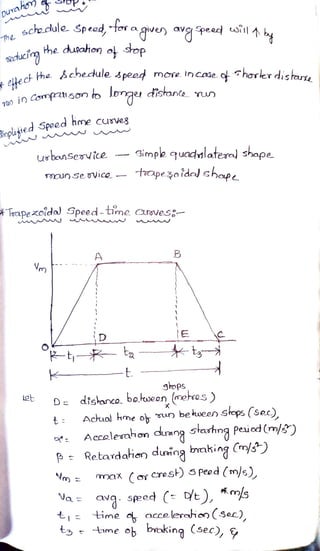 Duration of stop:-
The schedule speed, for a given avg speed will ↑ by
reducing the duration of stop
* effect the Schedule speed more in case of Shorter distance
run in Comparison to longer distance run
Simplified Speed time curves
urban service — Simple quadrilateral shape
main service — trapezoidal shape
* Trapezoidal Speed-time Curves:-
A B
Vm
O D E C
t₁ t₂ t₃
t
stops
let D = distance between (metres)
t: Actual time of run between stops (sec),
α = Acceleration during starting period (m/s²)
β = Retardation during braking (m/s²)
Vm = max (or crest) speed (m/s),
Va = avg. speed (= D/t), m/s
t₁ = time of acceleration (sec),
t₃ = time of braking (sec), &